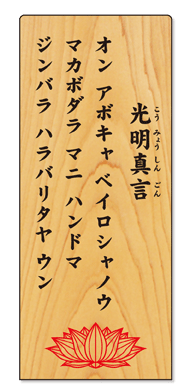 光明真言
こうみょうしんごん
オン アボキャ ベイロシャノウ
マカボダラ マニ ハンドマ
ジンバラ ハラバリタヤ ウン